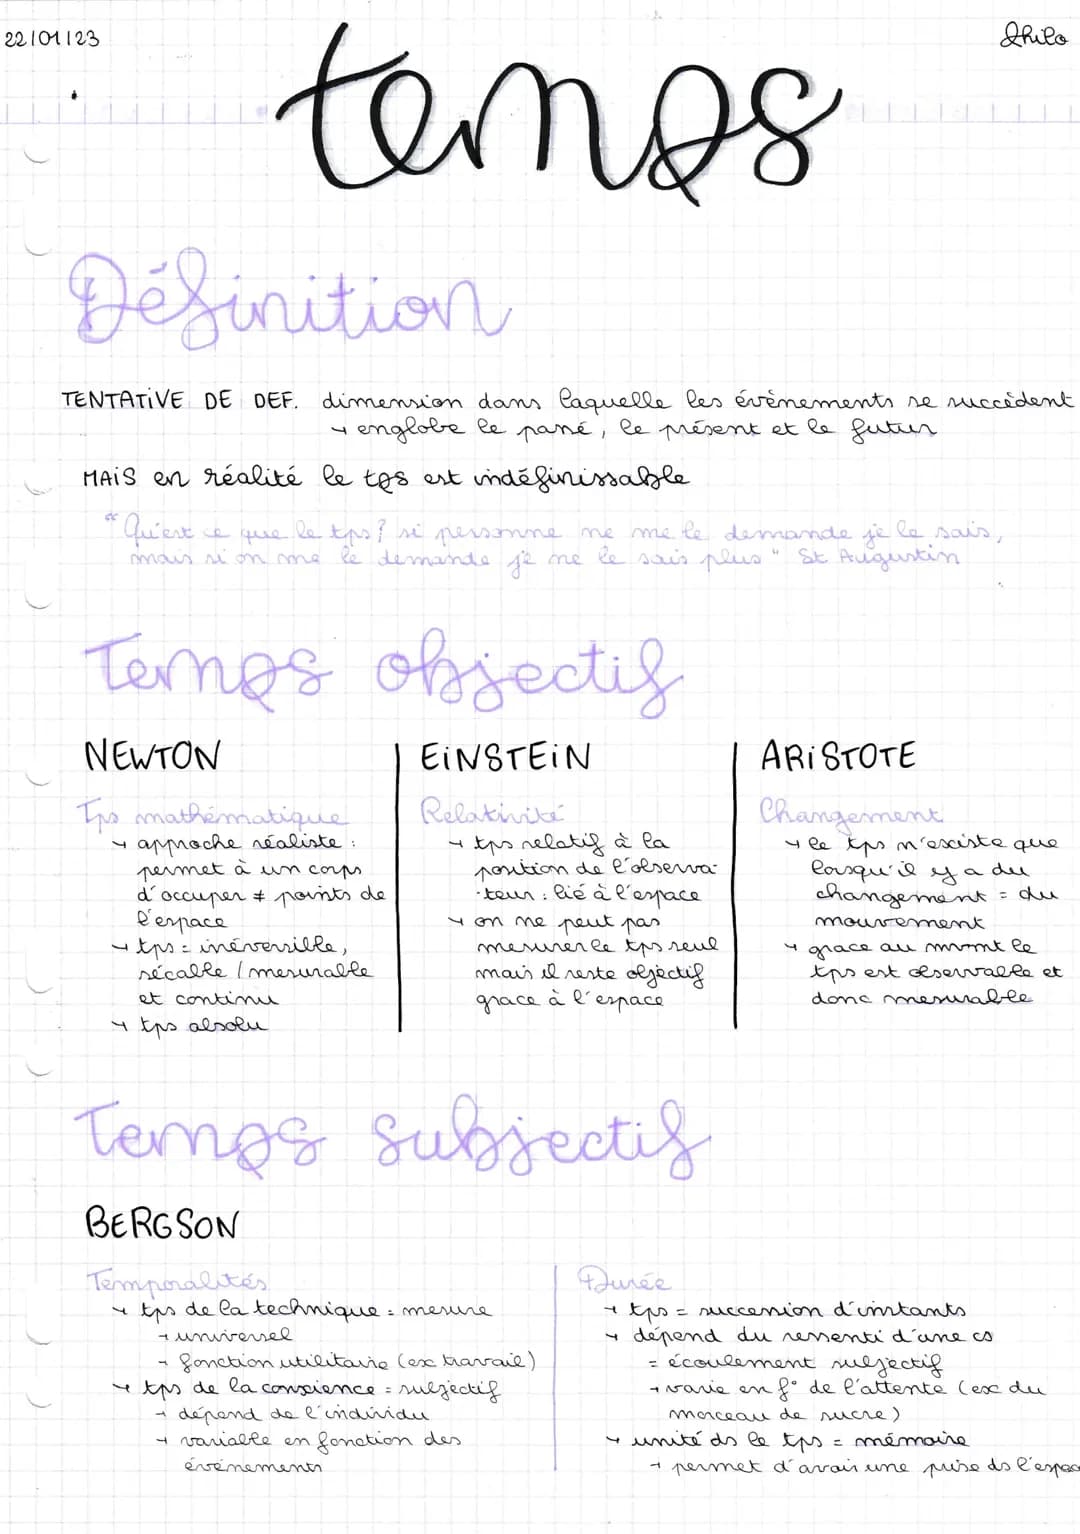 22/01/23
Philo
temps
Définition
TENTATIVE DE DEF. dimension dans laquelle les évènements se succèdent
→ englobe le passé, le présent et le futur
MAIS en réalité le tps est indéfinissable
"Qu'est ce que le tps? si personne ne me le demande je le sais,
mais si on me le demande je ne le sais plus" St Augustin
Temps objectif
NEWTON
Tps mathématique
→ approche réaliste :
permet à un corps
d'occuper ≠ points de
l'espace
→ tps = irréversible,
sécable / mesurable
et continu
→ tps absolu
EINSTEIN
Relativité
→ tps relatif à la
position de l'observa-
-teur : lié à l'espace
→ on ne peut pas
mesurer le tps seul
mais il reste objectif
grace à l'espace
ARISTOTE
Changement
→ le tps n'existe que
lorsqu'il y a du
changement = du
mouvement
→ grace au mvmt le
tps est observable et
donc mesurable
Temps subjectif
BERGSON
Temporalités
→ tps de la technique = mesure
→ universel
→ fonction utilitaire (ex travail)
→ tps de la conscience = subjectif
→ dépend de l'individu
→ variable en fonction des
événements
Durée
→ tps = succession d'instants
→ dépend du ressenti d'une cs
= écoulement subjectif
→ varie en f° de l'attente (ex du
morceau de sucre)
→ unité ds le tps = mémoire
→ permet d'avoir une prise ds l'espac